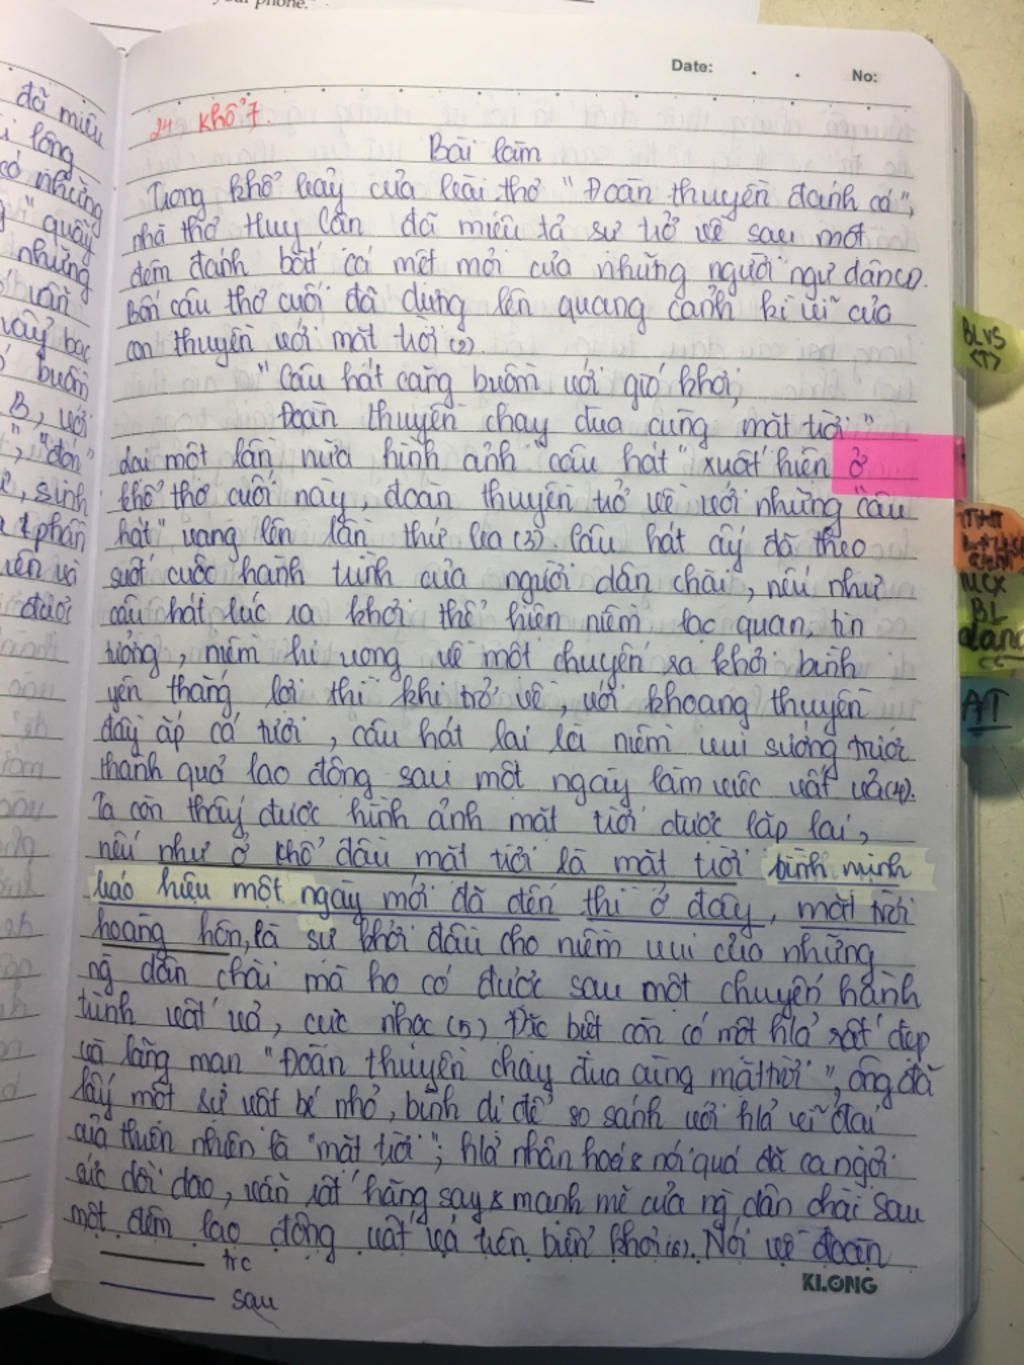 your phone."
Date: . . No:
24 Khổ 7.
Bài làm
đã miêu
Trong khổ bảy của bài thơ "Đoàn thuyền đánh cá",
lòng
nhà thơ Huy Cận đã miêu tả sự trở về sau một
có những
đêm đánh bắt cá mệt mỏi của những người ngư dân(1).
" quẫy
những
Bốn câu thơ cuối đã dựng lên quang cảnh kì vĩ của
con thuyền với mặt trời (2).
vẩy bạc
"Câu hát căng buồm với gió khơi,
buồm
Đoàn thuyền chạy đua cùng mặt trời"
B, với
dai một lần nữa hình ảnh "câu hát" xuất hiện ở
", "đón"
khổ thơ cuối này, đoàn thuyền trở về với những "câu
, sinh
hát" vang lên lần thứ ba (3). Câu hát ấy đã theo
phần
suốt cuộc hành trình của người dân chài, nếu như
được
câu hát lúc ra khơi thể hiện niềm lạc quan, tin
tưởng, niềm hi vọng về một chuyến ra khơi bình
yên thắng lợi thì khi trở về, với khoang thuyền
đầy ắp cá tươi, câu hát lại là niềm vui sướng trước
thành quả lao động sau một ngày làm việc vất vả(4).
Ta còn thấy được hình ảnh mặt trời được lặp lại,
nếu như ở khổ đầu mặt trời là mặt trời bình minh
báo hiệu một ngày mới đã đến thì ở đây, mặt trời
hoàng hôn, là sự khởi đầu cho niềm vui của những
ng dân chài mà họ có được sau một chuyến hành
trình vất vả, cực nhọc (5) Đặc biệt còn có một h/a rất đẹp
và lãng mạn "Đoàn thuyền chạy đua cùng mặt trời", ông đã
lấy một sự vật bé nhỏ, bình dị để so sánh với h/a vĩ đại
của thiên nhiên là "mặt trời"; h/a nhân hoá & nói quá đã ca ngợi
sức dồi dào, vẫn rất hăng say & mạnh mẽ của ng dân chài sau
một đêm lao động vất vả trên biển khơi(6). Nói về đoàn
trc
sau
KLONG
BLVS
(T)
MCX
BL
dang
CS
AT